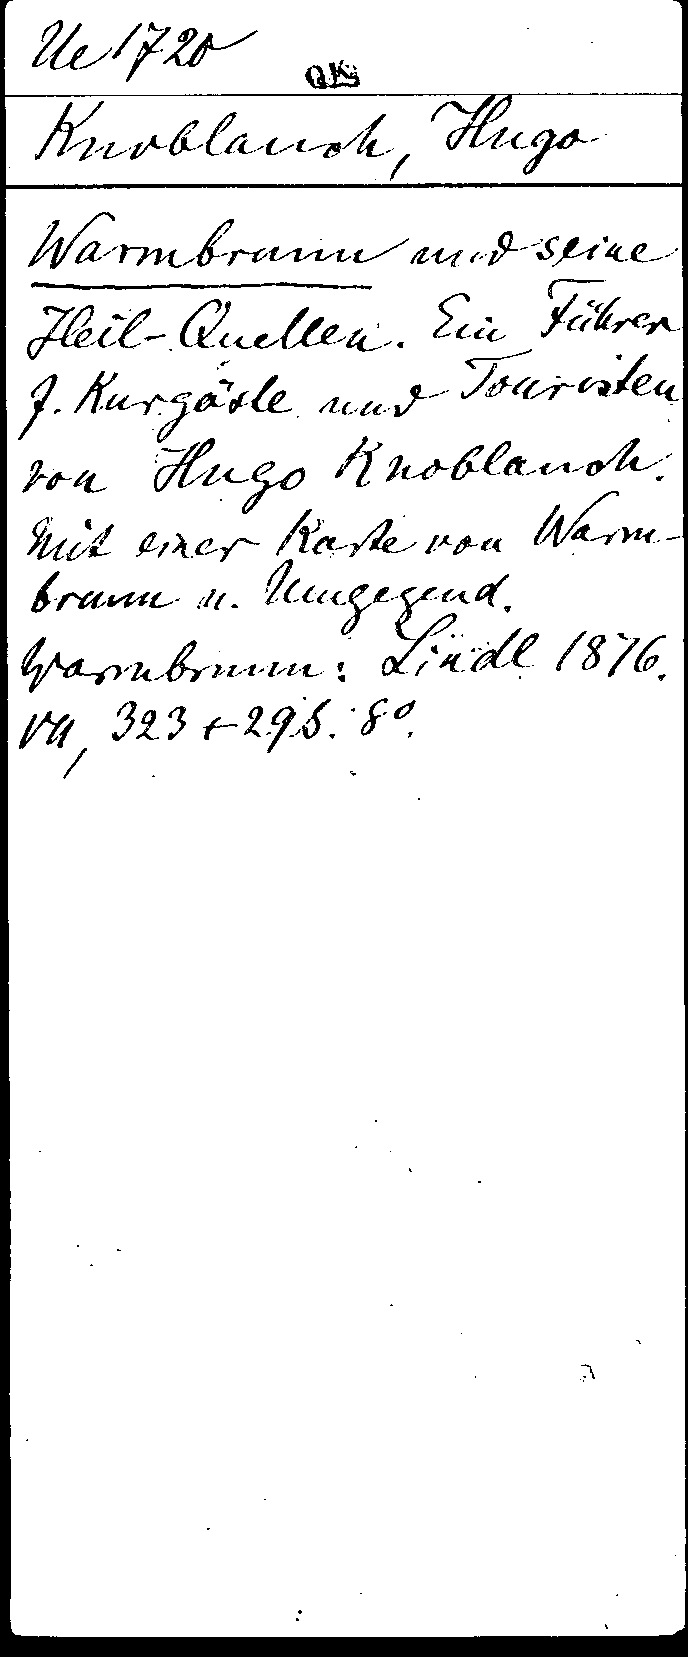 Ue 1720
QK
Knoblauch, Hugo
Warmbrunn und seine
Heil-Quellen. Ein Führer
f. Kurgäste und Touristen
von Hugo Knoblauch.
Mit einer Karte von Warm-
brunn u. Umgegend.
Warmbrunn: Liedl 1876.
VII, 323 + 29 S. 8°.